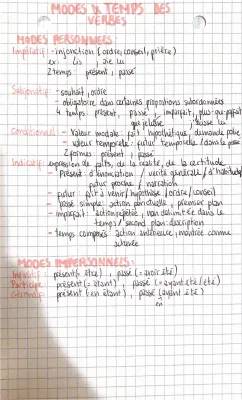 MODES & TEMPS DES
VERBES
MODES PERSONNELS:
Impératif: - injonction (ordre, conseil, prière)
ex: Lis , lu
2 temps: présent, passé
Subjonctif: - souhait, ordre
- obligatoire dans certaines propositions subordonnées
4 temps: présent, passé, imparfait, plus-que-parfait
que j'eusse
Conditionnel: - valeur modale: fait hypothétique, demande polie
- valeur temporelle: futur temporelle (dans le passé
2 formes: présent, passé
Indicatif: expression de faits, de la réalité, de la certitude
- Présent: d'énonciation / vérité générale / d'habitude/
futur proche / narration
- futur: fait à venir / hypothèse / ordre / conseil
- passé simple: action ponctuelle, premier plan
- imparfait: action répétée, non délimitée dans le
temps / second plan: description
- temps composés: action antérieure, montrée comme
achevée
MODES IMPERSONNELS:
Infinitif: présent (= être), passé (= avoir été)
Participe: présent (= étant), passé (= ayant été / été)
Gérondif: présent (en étant), passé (ayant été)
en